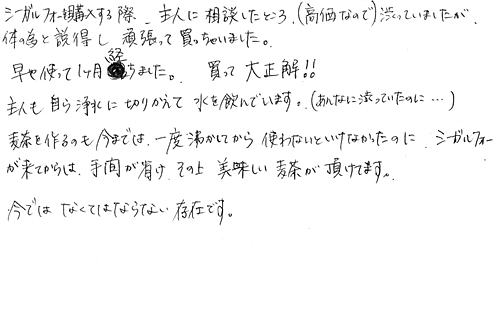 シーガルフォー購入する際、主人に相談したところ、(高価なので)渋っていましたが、
体の為と説得し 頑張って買っちゃいました。
早や使って1ヶ月経ちました。 買って大正解!!
主人も自ら浄水に切りかえて水を飲んでいます。(あんなに渋っていたのに…)
麦茶を作るのも今までは、一度沸かしてから使わないといけなかったのに、シーガルフォー
が来てからは、手間が省け、その上 美味しい麦茶が頂けてます。
今では なくてはならない存在です。